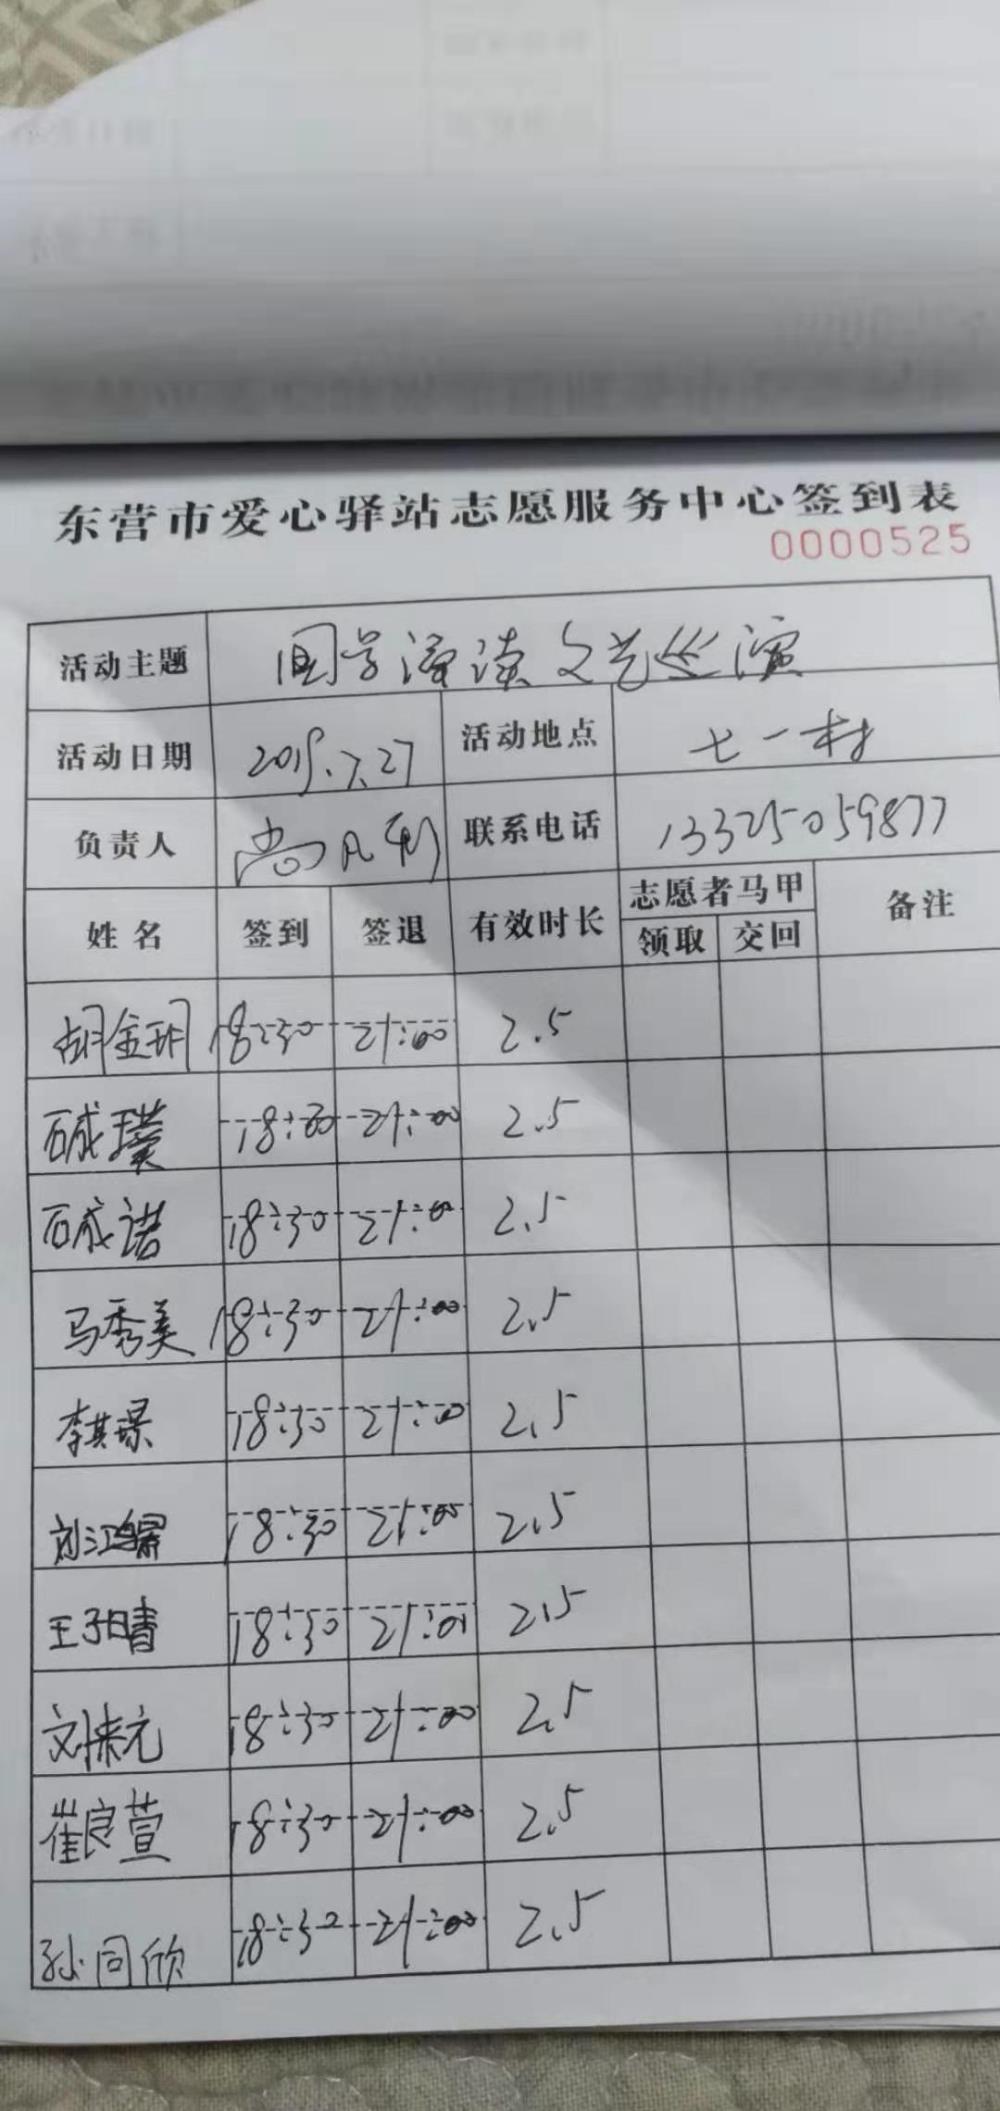 东营市爱心驿站志愿服务中心签到表
0000525
活动主题 国学诵读文艺巡演
活动日期 2019.7.27 活动地点 七一村
负责人 尚凡利 联系电话 13325059877
姓名 签到 签退 有效时长 志愿者马甲 备注
领取 交回
胡金玥 18:30 21:00 2.5
石成璞 18:30 21:00 2.5
石成诺 18:30 21:00 2.5
马秀美 18:30 21:00 2.5
李其璟 18:30 21:00 2.5
刘江 18:30 21:00 2.5
王子晴 18:30 21:00 2.5
刘未元 18:30 21:00 2.5
崔良萱 18:30 21:00 2.5
孙同欣 18:30 21:00 2.5